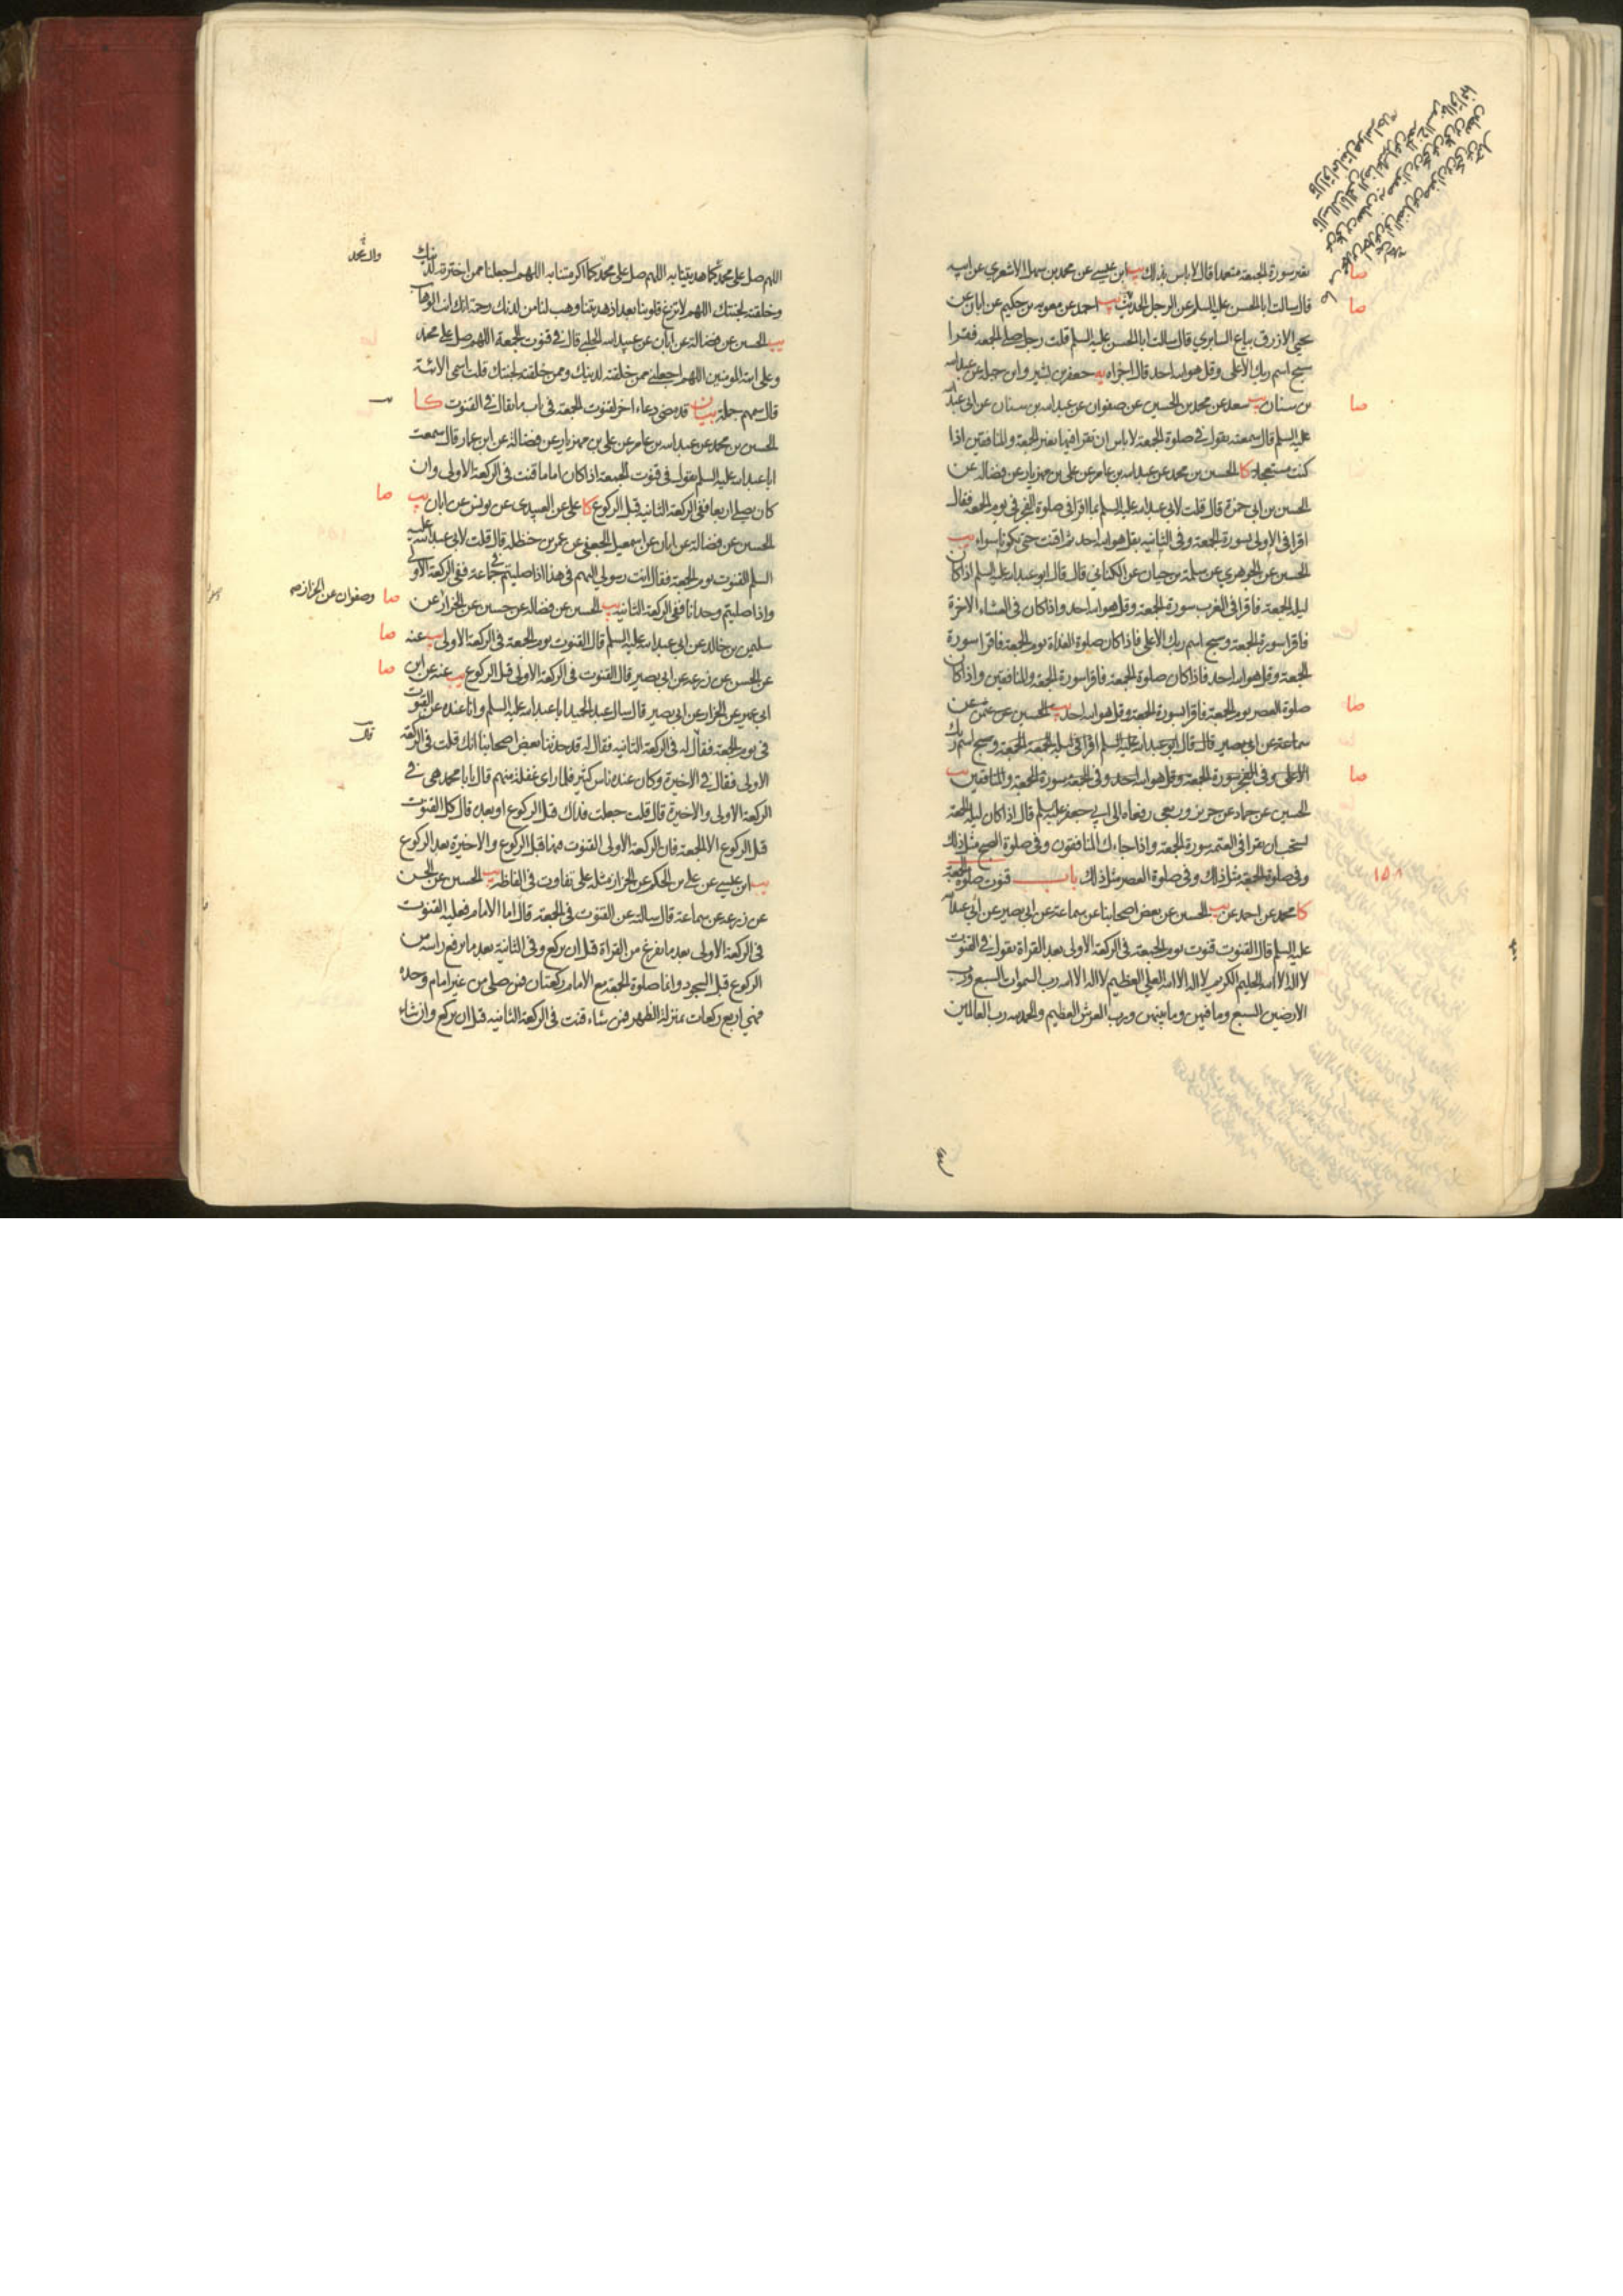 بغير سورة الجمعة متعمدا قال لا باس بذلك يب ابن عيسى عن محمد بن سهل الاشعري عن ابيه
قال سالت ابا الحسن عليه السلم عن الرجل الحديث يب احمد عن معوية بن حكيم عن ابان عن
يحيى الازرق بياع السابري قال سالت ابا الحسن عليه السلم قلت رجل صلى الجمعه فقرا
سبح اسم ربك الاعلى وقل هو الله احد قال اجزاه يه جعفر بن بشير وابن جبلة عن عبدالله
بن سنان يب سعد عن محمد بن الحسين عن صفوان عن عبدالله بن سنان عن ابى عبدالله
عليه السلم قال سمعته يقول في صلوة الجمعة لا باس ان تقرا فيها بغير الجمعة والمنافقين اذا
كنت مستعجلا كا الحسين بن محمد عن عبدالله بن عامر عن على بن مهزيار عن فضالة عن
الحسين بن ابى حمزة قال قلت لابى عبدالله عليه السلم بما اقرا فى صلوة الفجر فى يوم الجمعة فقال
اقرا فى الاولى بسورة الجمعة وفى الثانيه بقل هو الله احد ثم اقنت حتى تكونا سواء يب
الحسين عن الجوهري عن سلمة بن حيان عن الكنانى قال قال ابو عبدالله عليه السلم اذا كان
ليلة الجمعة فاقرا فى المغرب سورة الجمعة وقل هو الله احد واذا كان فى العشاء الاخرة
فاقرا سورة الجمعة وسبح اسم ربك الاعلى فاذا كان صلوة الغداة يوم الجمعة فاقرا سورة
الجمعة وقل هو الله احد فاذا كان صلوة الجمعة فاقرا سورة الجمعة والمنافقين واذا كان
صلوة العصر يوم الجمعة فاقرا بسورة الجمعة وقل هو الله احد يب الحسين عن عثمن عن
سماعة عن ابى بصير قال قال ابو عبدالله عليه السلم اقرا فى ليلة الجمعة الجمعة وسبح اسم ربك
الاعلى وفى الفجر سورة الجمعة وقل هو الله احد وفى الجمعة سورة الجمعة والمنافقين يب
الحسين عن حماد عن حريز وربعى رفعاه الى ابي جعفر عليه السلم قال اذا كان ليلة الجمعة
يستحب ان يقرا فى العتمة سورة الجمعة واذا جاءك المنافقون وفى صلوة الصبح مثل ذلك
وفى صلوة الجمعة مثل ذلك وفى صلوة العصر مثل ذلك باب قنوت صلوة الجمعة
١٥٨
كا محمد عن احمد عن يب الحسين عن بعض اصحابنا عن سماعة عن ابى بصير عن ابى عبدالله
عليه السلم قال القنوت قنوت يوم الجمعة فى الركعة الاولى بعد القراة تقول في القنوت
لا اله الا الله الحليم الكريم لا اله الا الله العلي العظيم لا اله الا الله رب السموات السبع ورب
الارضين السبع وما فيهن وما بينهن ورب العرش العظيم والحمد لله رب العالمين
صا
صا
صا
صا
صا
اللهم
اللهم صل على محمد كما هديتنا به اللهم صل على محمد كما اكرمتنا به اللهم اجعلنا ممن اخترته لدينك
وال محمد
وخلقته لجنتك اللهم لا تزغ قلوبنا بعد اذ هديتنا وهب لنا من لدنك رحمة انك انت الوهاب
يب الحسين عن فضالة عن ابان عن عبيدالله الحلبي قال في قنوت الجمعة اللهم صل على محمد
وعلى ائمة المومنين اللهم اجعلنى ممن خلقته لدينك وممن خلقته لجنتك قلت اسمى الائمة
قال سمهم جملة بيان قد مضى دعاء اخر لقنوت الجمعة فى باب ما يقال في القنوت كا
الحسين بن محمد عن عبدالله بن عامر عن على بن مهزيار عن فضالة عن ابن عمار قال سمعت
ابا عبدالله عليه السلم يقول فى قنوت الجمعة اذا كان اماما قنت فى الركعة الاولى وان
كان يصلى اربعا ففى الركعة الثانيه قبل الركوع كا على عن العبيدى عن يونس عن ابان يب
صا
الحسين عن فضالة عن ابان عن اسمعيل الجعفى عن عمر بن حنظلة قال قلت لابى عبدالله عليه
السلم القنوت يوم الجمعة فقال انت رسولي اليهم فى هذا اذا صليتم فى جماعة ففى الركعة الاولى
واذا صليتم وحدانا ففى الركعة الثانيه يب الحسين عن فضالة عن حسين عن الخزاز عن
صا وصفوان عن الخزاز صح
سليمن بن خالد عن ابى عبدالله عليه السلم قال القنوت يوم الجمعة فى الركعة الاولى يب عنه
صا
عن الحسن عن زرعة عن ابى بصير قال القنوت فى الركعة الاولى قبل الركوع يب عنه عن ابن
صا
ابى عمير عن الخزاز عن ابى بصير قال سال عبد الحميد ابا عبدالله عليه السلم وانا عنده عن القنوت
فى يوم الجمعة فقال له فى الركعة الثانيه فقال له قد حدثنا بعض اصحابنا انك قلت فى الركعة
الاولى فقال فى الاخيرة وكان عنده ناس كثير فلما راى غفلة منهم قال يا با محمد هى فى
الركعة الاولى والاخيرة قال قلت جعلت فداك قبل الركوع او بعده قال كل القنوت
قبل الركوع الا الجمعة فان الركعة الاولى القنوت فيها قبل الركوع والاخيرة بعد الركوع
يب ابن عيسى عن على بن الحكم عن الخزاز مثله على تفاوت فى الفاظه يب الحسين عن الحسن
عن زرعة عن سماعة قال سالته عن القنوت فى الجمعة قال اما الامام فعليه القنوت
فى الركعة الاولى بعد ما يفرغ من القراة قبل ان يركع وفى الثانية بعد ما يرفع راسه من
الركوع قبل السجود وانما صلوة الجمعة مع الامام ركعتان فمن صلى من غير امام وحده
فهي اربع ركعات بمنزلة الظهر فمن شاء قنت فى الركعة الثانيه قبل ان يركع وان شاء